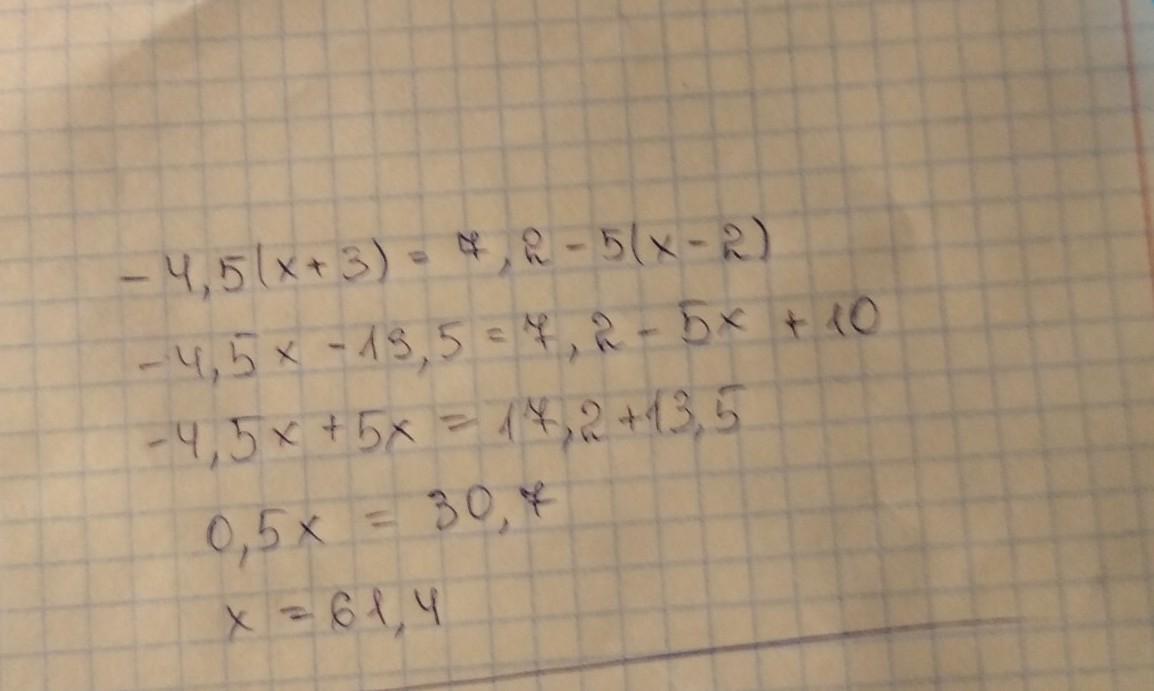 -4,5(x+3) = 7,2-5(x-2)
-4,5x -13,5=7,2-5x +10
-4,5x+5x = 17,2+13,5
0,5x = 30,7
x =61,4